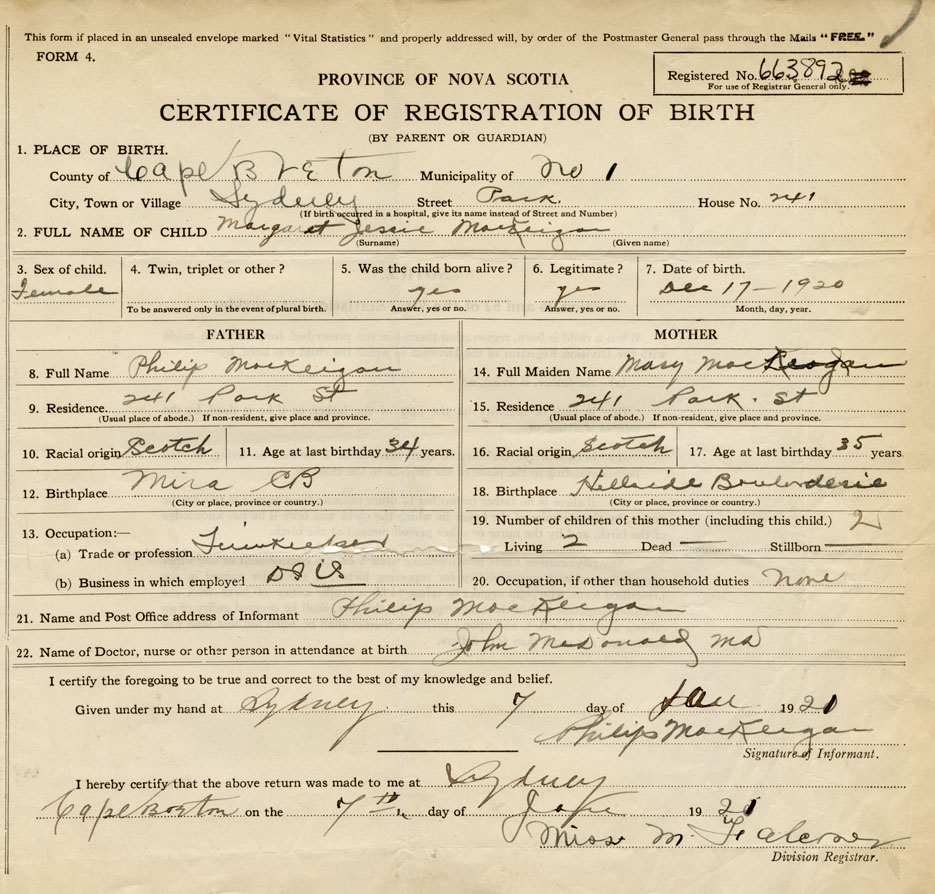 This form if placed in an unsealed envelope marked "Vital Statistics" and properly addressed will, by order of the Postmaster General pass through the Mails "FREE."
FORM 4.
PROVINCE OF NOVA SCOTIA
Registered No. 663892
For use of Registrar General only.
CERTIFICATE OF REGISTRATION OF BIRTH
(BY PARENT OR GUARDIAN)
1. PLACE OF BIRTH.
County of Cape Breton Municipality of No 1
City, Town or Village Sydney Street Park. House No. 241
(If birth occurred in a hospital, give its name instead of Street and Number)
2. FULL NAME OF CHILD Margaret Jessie MacKeigan
(Surname) (Given name)
3. Sex of child. 4. Twin, triplet or other? 5. Was the child born alive? 6. Legitimate? 7. Date of birth.
Female yes yes Dec 17-1920
To be answered only in the event of plural birth. Answer, yes or no. Answer, yes or no. Month, day, year.
FATHER
8. Full Name Philip MacKeigan
9. Residence. 241 Park St
(Usual place of abode.) If non-resident, give place and province.
10. Racial origin Scotch 11. Age at last birthday 34 years.
12. Birthplace Mira CB
(City or place, province or country.)
13. Occupation:—
(a) Trade or profession
(b) Business in which employed
MOTHER
14. Full Maiden Name Mary
15. Residence 241 Park. St
(Usual place of abode.) If non-resident, give place and province.
16. Racial origin Scotch 17. Age at last birthday 35 years
18. Birthplace Hillside Boularderie
(City or place, province or country.)
19. Number of children of this mother (including this child.) 2
Living 2 Dead — Stillborn —
20. Occupation, if other than household duties None
21. Name and Post Office address of Informant Philip MacKeigan
22. Name of Doctor, nurse or other person in attendance at birth John McDonald MD
I certify the foregoing to be true and correct to the best of my knowledge and belief.
Given under my hand at Sydney this 7 day of Jan 1921
Philip MacKeigan
Signature of Informant.
I hereby certify that the above return was made to me at Sydney
Cape Breton on the 7th day of 1921
Miss M.
Division Registrar.